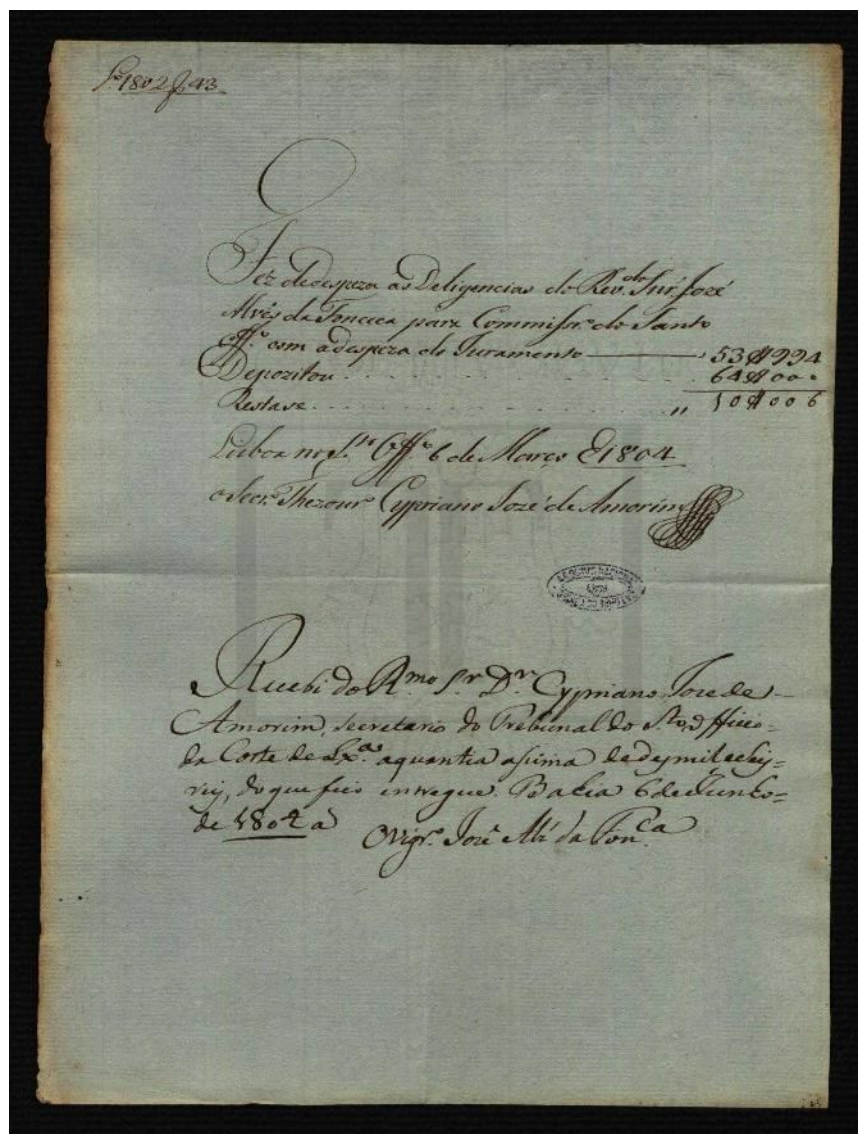 1802 f 43
Fez de despeza as Deligencias do Rev.do Snr. José
Alvês da Fonceca para Commissr.o do Santo
Off.o com a despeza do Juramento — 53$994
Depozitou . . . . 64$000
Restase . . . . „ 10$006
Lisboa no S.to Off.o 6 de Março de 1804
o Secr.o Thezour.o Cypriano José de Amorim
ARQUIVO NACIONAL
Recebi do R.mo Sr. Dr. Cypriano Jose de
Amorim, secretario do Tribunal do S.to Officio=
da Corte de Lx.a a quantia asima de des mil e seis=
reis, do que fico entregue. Bahia 6 de Junho=
de 1804 a
O Vigr.o José Alz da Fon.ca